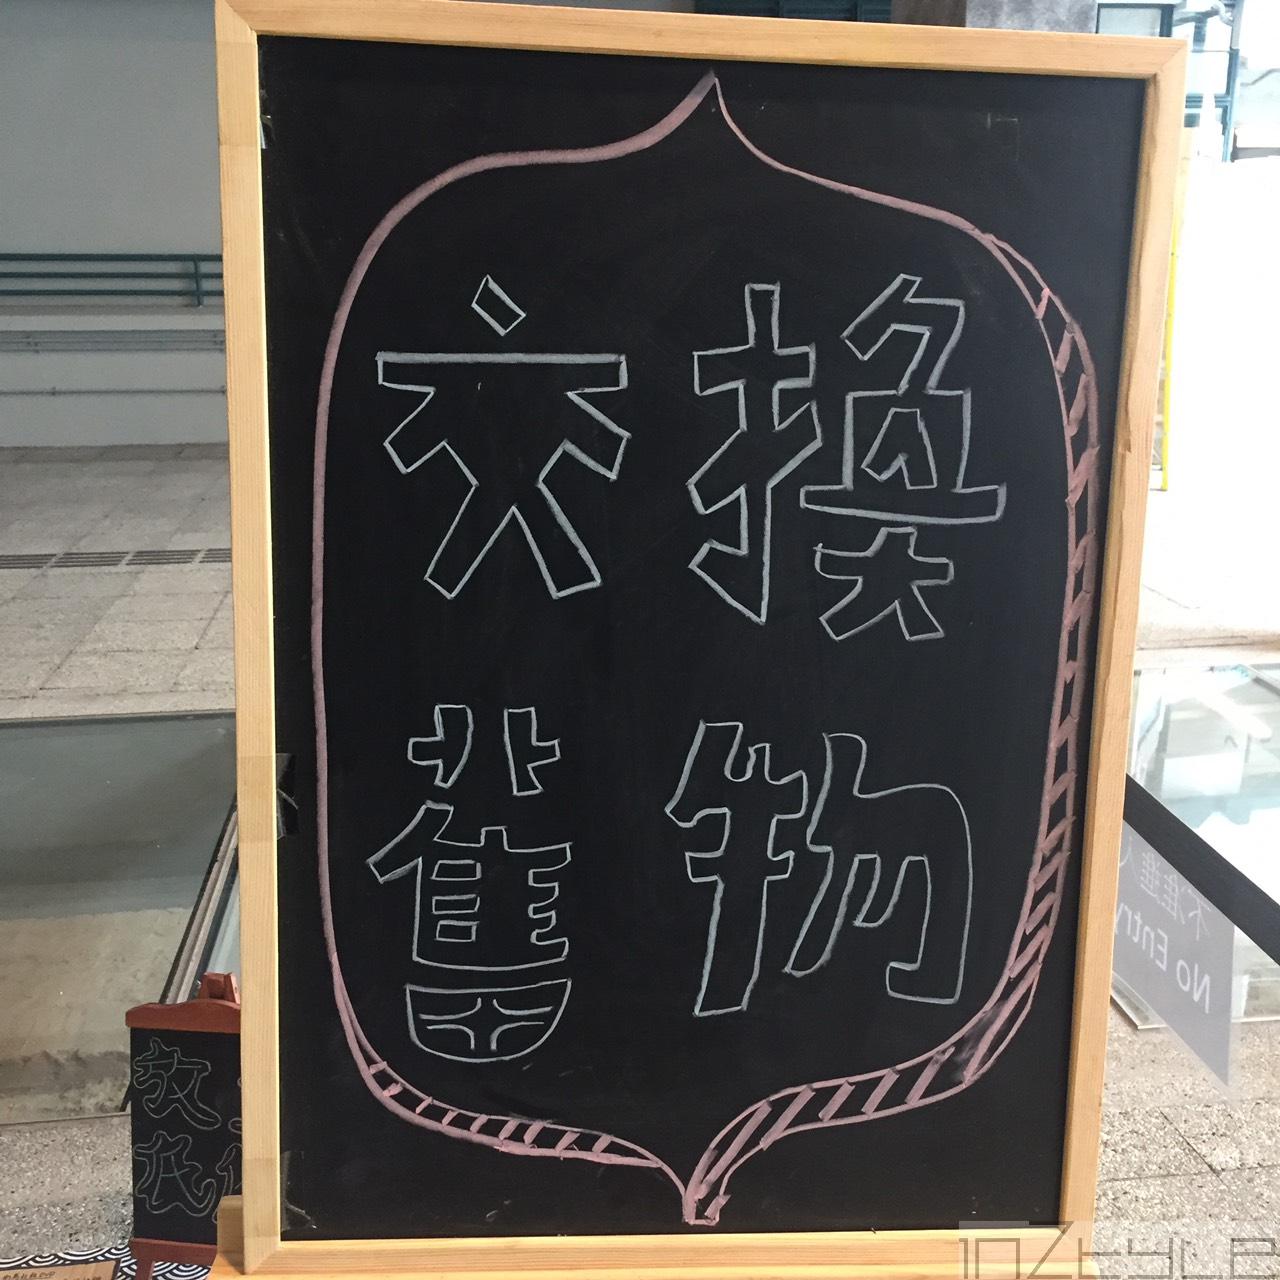 交換
舊物
放
低
不准進入
No Entry